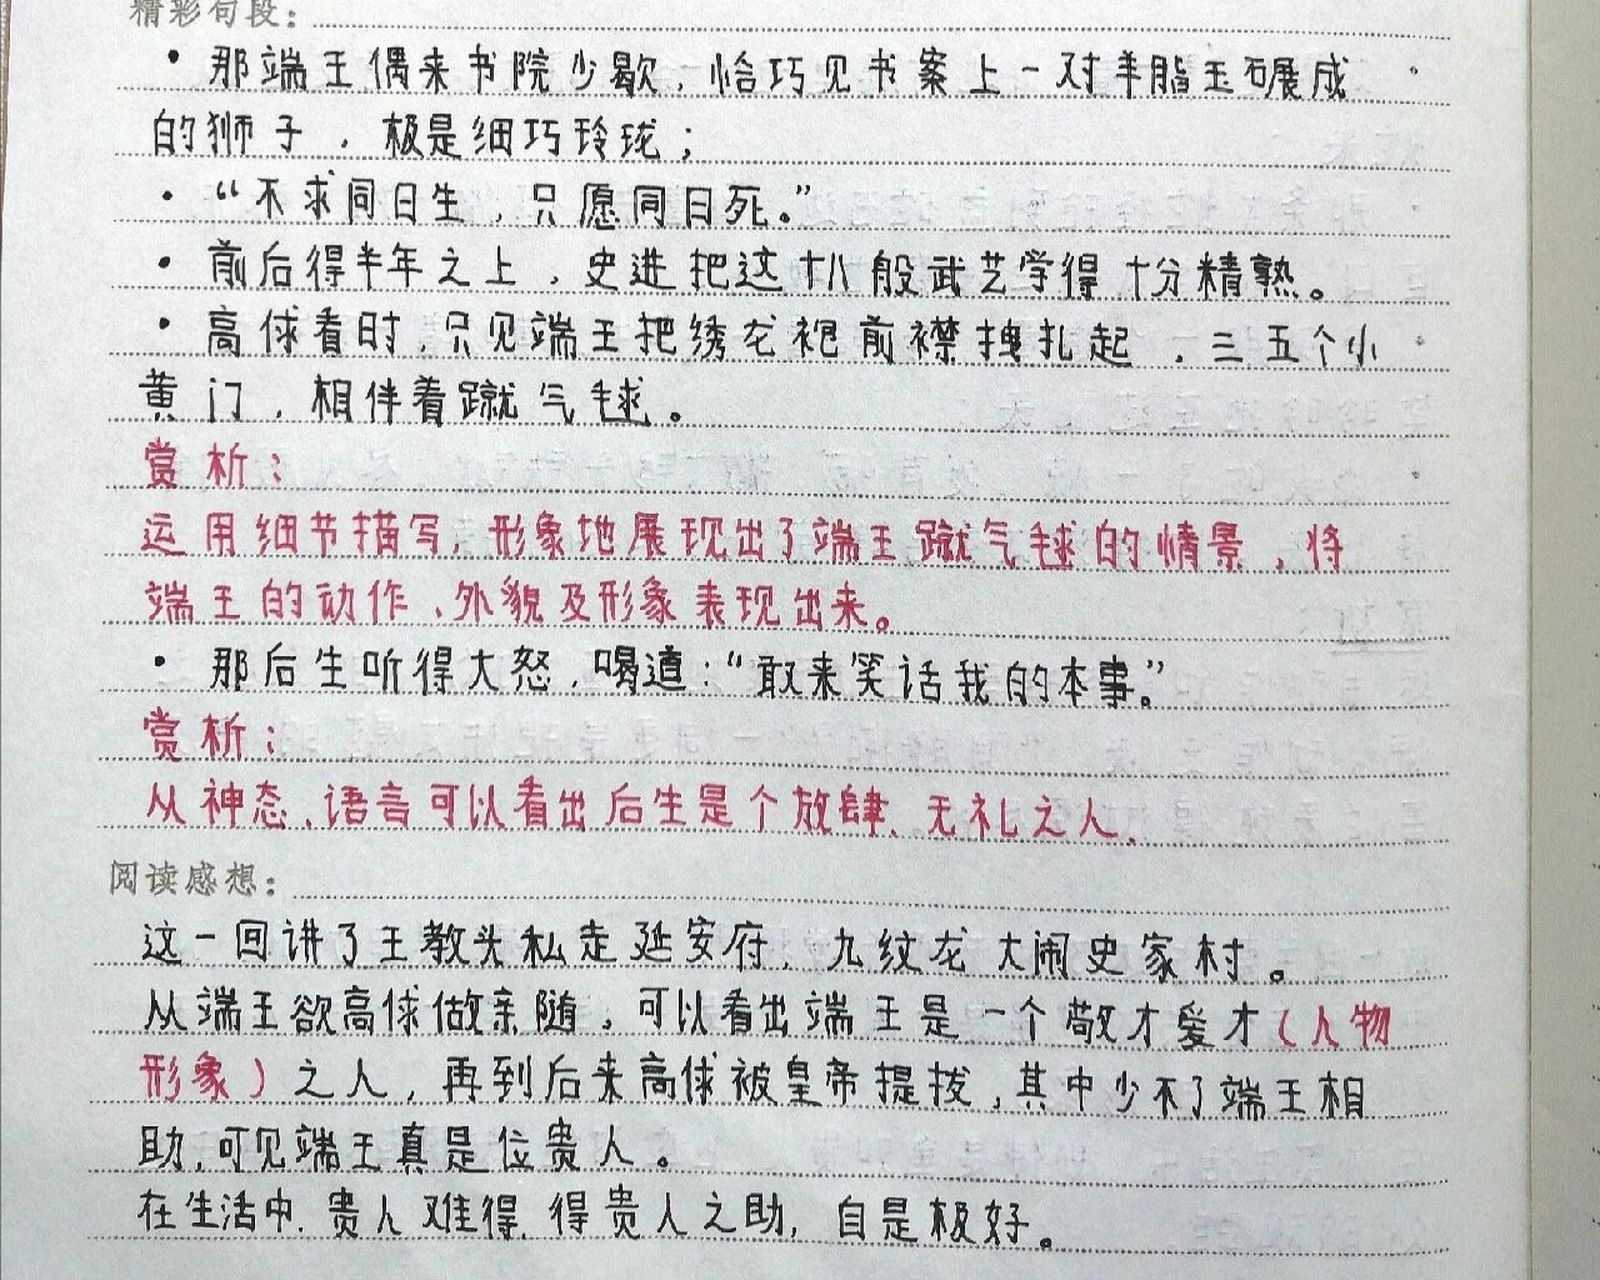 精彩句段：
· 那端王偶来书院少歇，恰巧见书案上一对羊脂玉碾成
的狮子，极是细巧玲珑；
· “不求同日生，只愿同日死。”
· 前后得半年之上，史进把这十八般武艺学得十分精熟。
· 高俅看时，只见端王把绣龙袍前襟拽扎起，三五个小
黄门，相伴着蹴气毬。
赏析：
运用细节描写，形象地展现出了端王蹴气毬的情景，将
端王的动作、外貌及形象表现出来。
· 那后生听得大怒，喝道：“敢来笑话我的本事。”
赏析：
从神态、语言可以看出后生是个放肆、无礼之人.
阅读感想：
这一回讲了王教头私走延安府，九纹龙大闹史家村。
从端王欲高俅做亲随，可以看出端王是一个敬才爱才（人物
形象）之人，再到后来高俅被皇帝提拔，其中少不了端王相
助，可见端王真是位贵人。
在生活中，贵人难得，得贵人之助，自是极好。